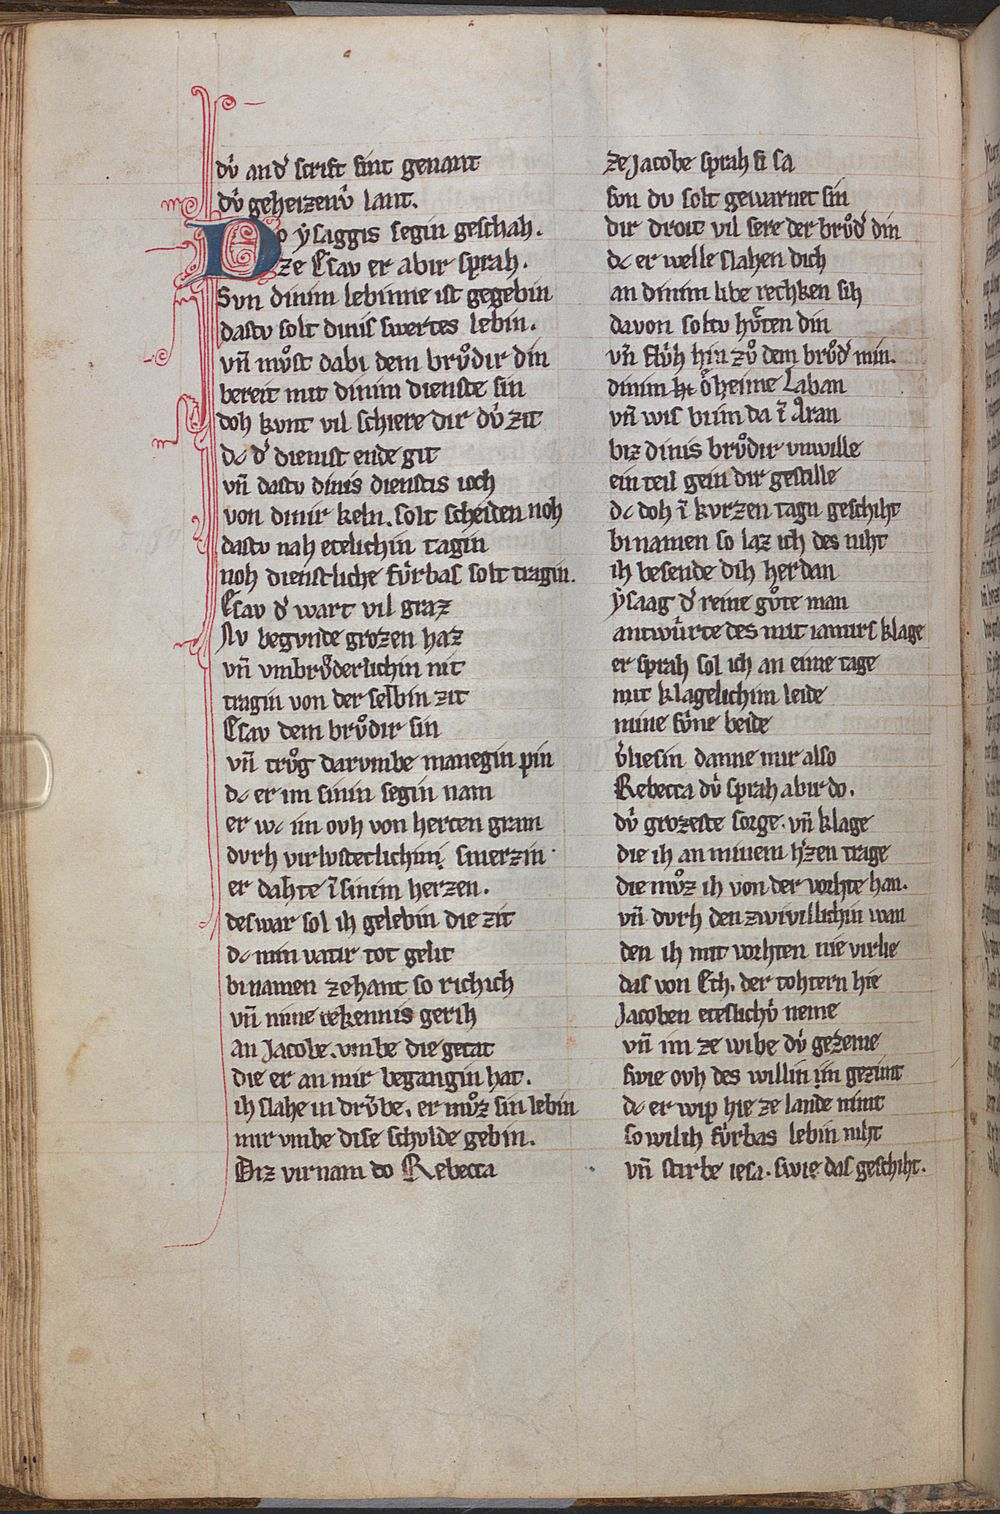 dv́ and͛ scrift sint genant
dv́ geheizenv́ lant.
Do ẏsaggis segin geschah.
ze Esav er abir sprah.
Svn dinim lebinne ist gegebin
dastv solt dinis swertes lebin.
vn̄ mv̊st dabi dem brv̊dir din
bereit mit dinim dienste sin
doh kvnt vil schiere dir dv́ zit
dc d͛ dienist ende git
vn̄ dastv dinis dienstis ioch
von dinir keln. solt scheiden noh
dastv nah etelichin tagin
noh dienstliche fv́rbas solt tragin.
Esav d͛ wart vil graz
Nv begvnde grozen haz
vn̄ vmbrv̊derlichin nit
tragin von der selbin zit
Esav dem brv̊dir sin
vn̄ trv̊g darvmbe manegin pin
dc er im sinin segin nam
er wc im ovh von herten gram
dvrh virlvsteclichini smerzin
er dahte ī sinim herzen.
deswar sol ih gelebin die zit
dc min vatir tot gelit
binamen zehant so richich
vn̄ mine rekennis gerih
an Jacobe. vmbe die getat
die er an mir begangin hat.
ih slahe in drv́be. er mv̊z sin lebin
mir vmbe dise schvlde gebin.
Diz virnam do Rebecca
ze Jacobe sprah si sa
svn dv solt gewarnet sin
dir droit vil sere der brv̊d͛ din
dc er welle slahen dich
an dinim libe rechken sih
davon soltv hv̊ten din
vn̄ flv́h hin zv̊ dem brv̊d͛ min.
dinim oͤheime Laban
vn̄ wis bi im da ī Aran
biz dinis brv̊dir vnwille
ein teil gein dir gestille
dc doh ī kvrzen tagn geschiht
binamen so laz ich des niht
ih besende dih herdan
ẏsaag d͛ reine gv̊te man
antwv́rte des mit iamirs klage
er sprah sol ich an eime tage
mit klagelichim leide
mine sv́ne beide
v͛liesin danne mir also
Rebecca dv́ sprah abir do.
dv́ grozeste sorge. vn̄ klage
die ih an minem h͛zen trage
die mv̊z ih von der vorhte han.
vn̄ dvrh den zwivillichin wan
den ih mit vorhten nie virlie
das von Eth. der tohtern hie
Jacoben eteslichv́ neme
vn̄ im ze wibe dv́ gezeme
swie ovh des willin im gezimt
dc er wip hie ze lande nimt
so wil ih fv́rbas lebin niht
vn̄ stirbe iesa. swie das geschiht.